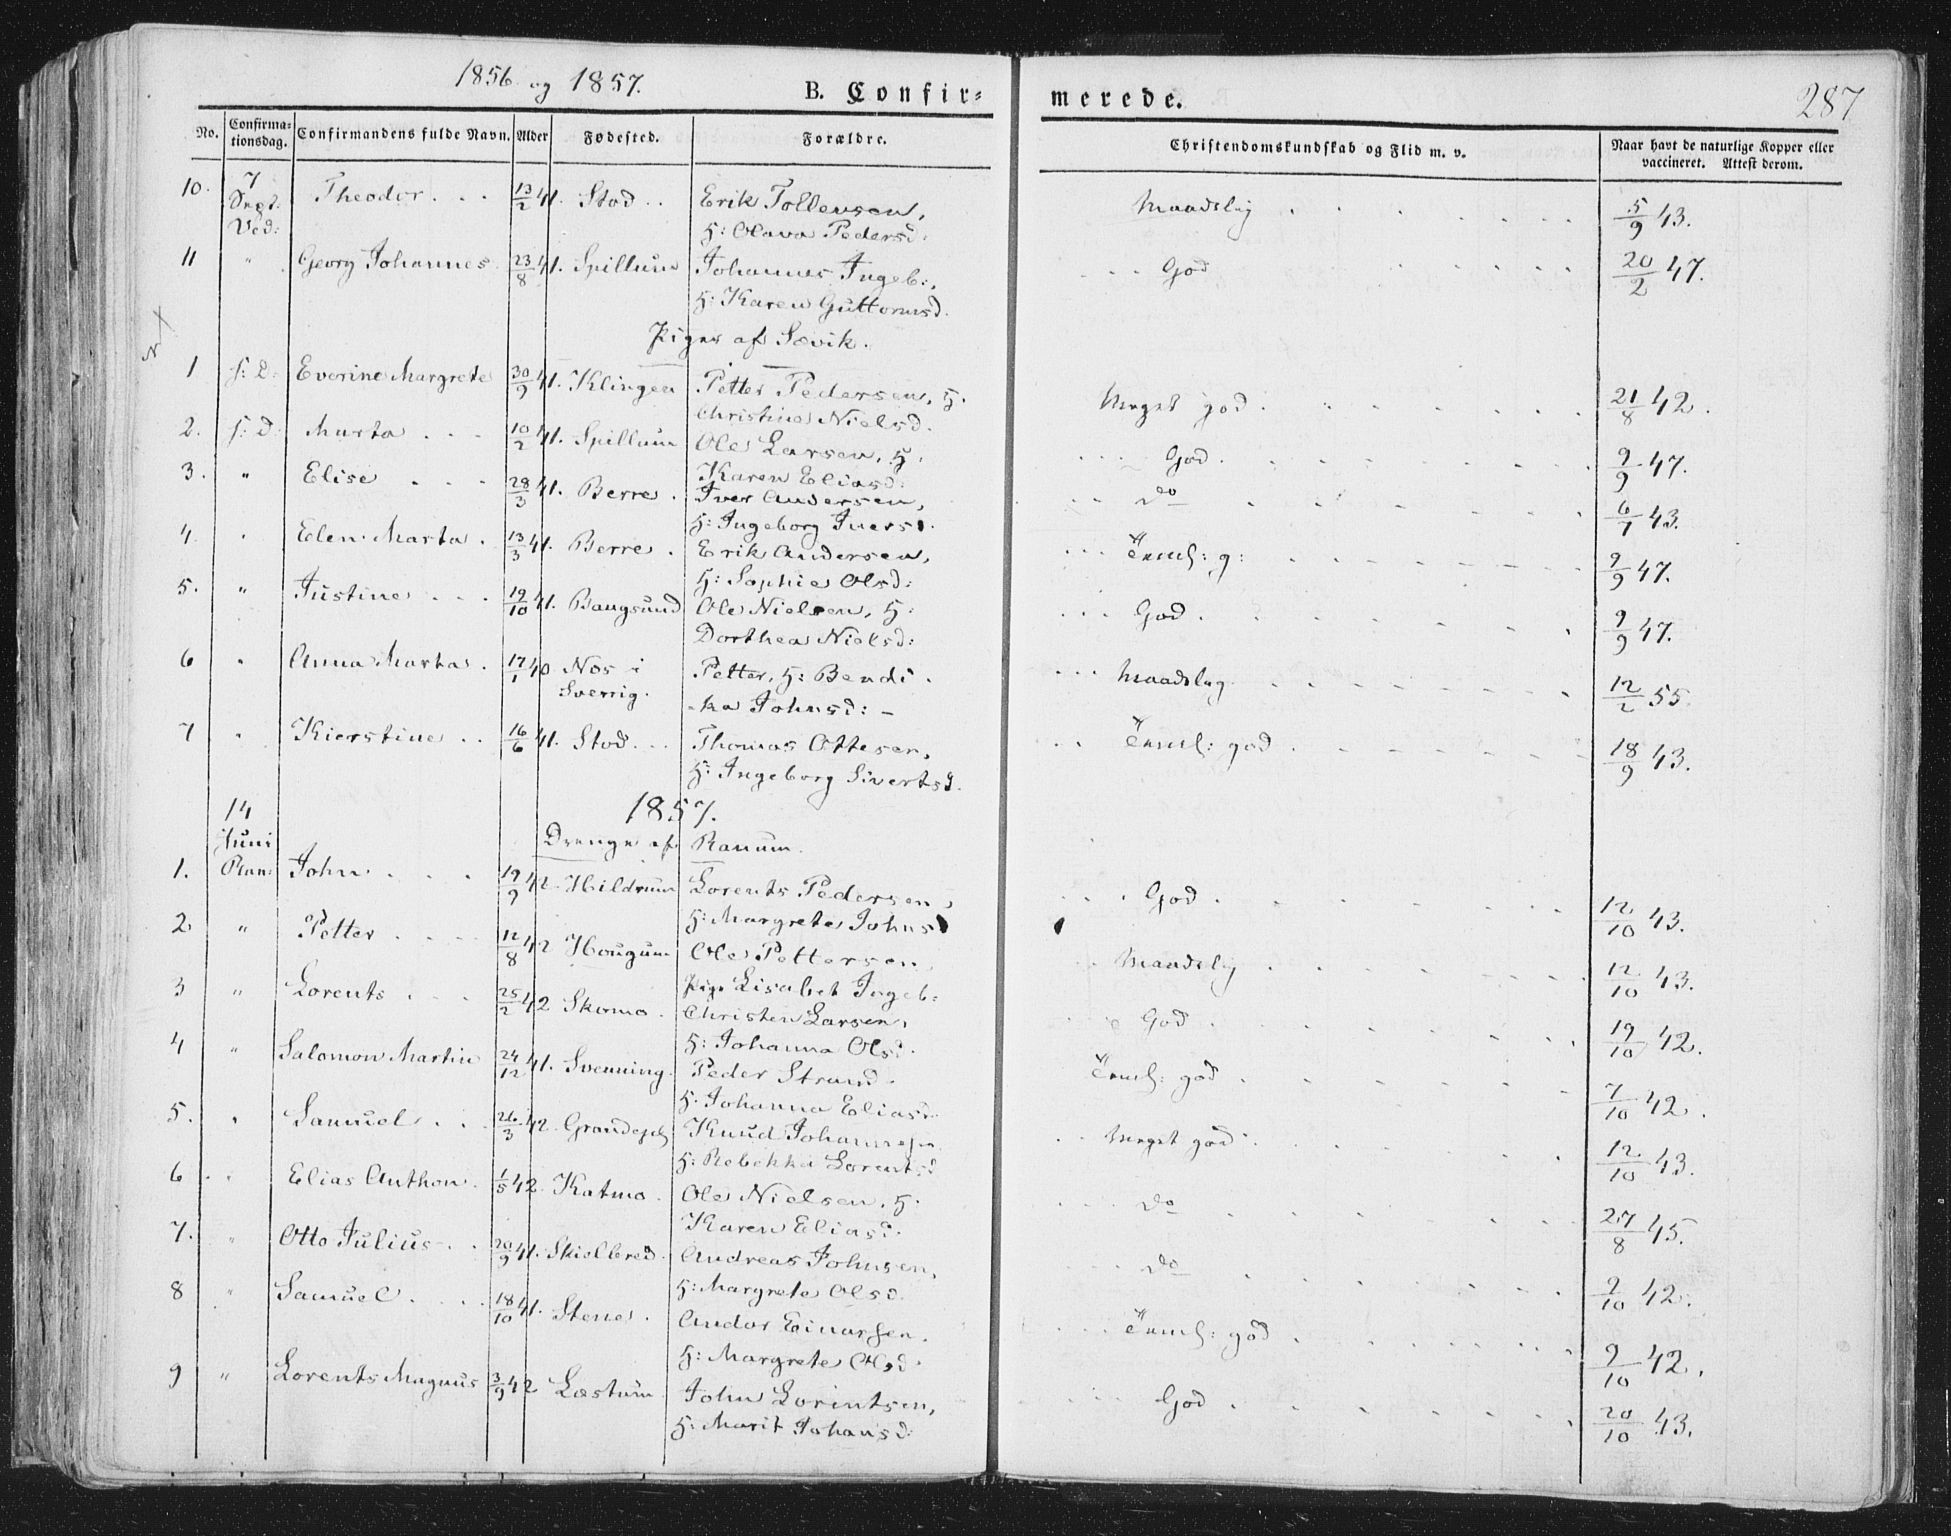 1856 og 1857.
B. Confir=
merede.
287
No.
Confirma=
tionsdag.
Confirmandens fulde Navn.
Alder
Fødested.
Forældre.
Christendomskundskab og Flid m. v.
Naar havt de naturlige Kopper eller
vaccineret. Attest derom.
10. 7 Theodor . . . 13/2 41. Stod . . Erik Tollevsen, Maadelig 5/9 43.
Sept.
Ved: H: Olava Pedersd:
11 " Georg Johannes 23/8 41. Spillum Johannes Ingeb:, God 20/2 47.
H: Karen Guttormsd.
Piger af Sævik.
1 f: D: Everine Margrete 30/9 41. Klingen Petter Pedersen, H. Meget god . 21/8 42.
Christine Nielsd.
2. f: D: Marta . . . 10/2 41. Spillum Ole Larsen, H. God . 9/9 47.
Karen Eliasd:
3. " Elise . . . 28/3 41. Berre . Iver Andersen, do 6/7 43.
H: Ingeborg Iversd.
4. " Elen Marta . 13/3 41. Berre . Erik Andersen, Teml: g: 9/9 47.
H: Sophie Olsd:
5. " Justine . . . 19/10 41. Bangsund Ole Nielsen, H: God . 9/9 47.
Dorthea Nielsd:
6 " Anna Marta . 17/1 40 Nos i Petter, H: Bendi- Maadelig 12/2 55.
Sverrig. -ka Johnsd: -
7 " Kierstine . . 16/6 41. Stod . . . Thomas Ottesen, Teml: god . 18/9 43.
H: Ingeborg Sivertsd.
14 1857.
Juni Drenge af Ranum.
1. Ran: John . . . . 19/9 42. Hildrum Lorents Pedersen, God . 12/10 43.
H: Margrete Johnsd
2 " Petter . . . . 12/8 42 Hougum Ole Pettersen, Maadelig 12/10 43.
Pige Lisabet Ingeb:
3 " Lorents . . . 25/2 42 Skomo . Christen Larsen, God . 19/10 42.
H: Johanna Olsd.
4 " Salomon Martin 24/12 41. Svenning. Peder Strand. Teml: god . 7/10 42.
H: Johanna Eliasd.
5. " Samuel . . . 26/3 42. Knud Johannesen Meget god . 12/10 43.
H: Rebekka Lorentsd
6 " Elias Anthon . 1/5 42. Katmo . Ole Nielsen, H. do 27/8 45.
Karen Eliasd.
7. " Otto Julius . . 20/9 41. Skielbred. Andreas Johnsen, do 9/10 42.
H: Margrete Olsd.
8 " Samuel . . . . 18/10 41. Stene . Andor Einarsen. Teml: god . 9/10 42.
H: Margrete Olsd.
9 " Lorents Magnus 3/9 42 Læstum John Lorintsen, God . 20/10 43.
H: Marit Johansd: